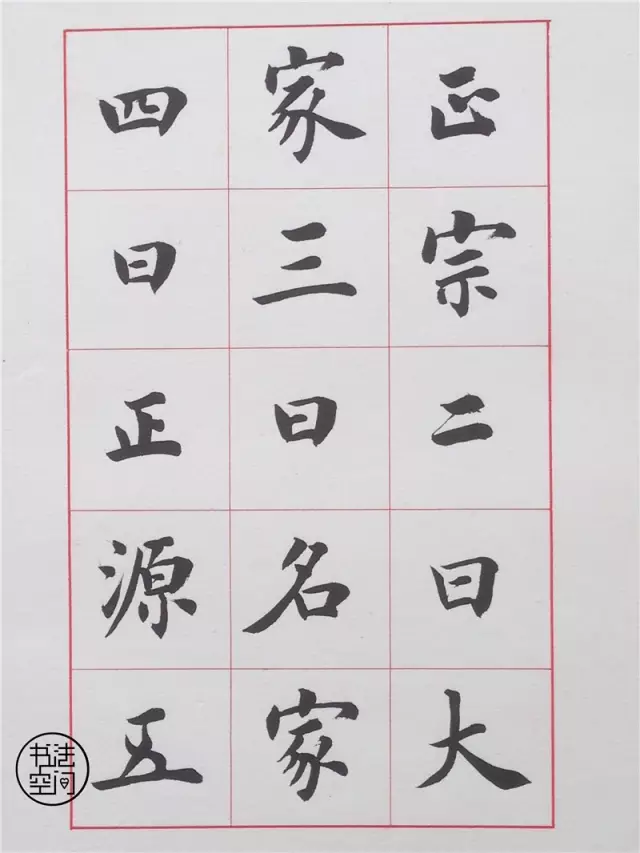 正宗二曰大
家三曰名家
四曰正源五
书法空间